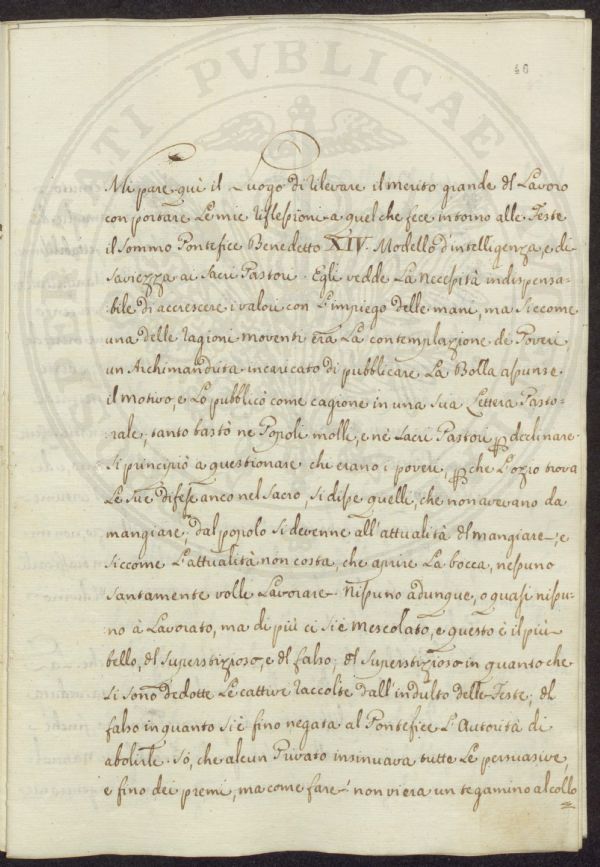 46
Mi pare quì il Luogo di rilevare il merito grande dl Lavoro
con portare Le mie riflessioni a quel che fece intorno alle Feste
il Sommo Pontefice Benedetto XIV. Modello d'intelligenza, e di
Saviezza ai Sacri Pastori. Egli vedde La necessità indispensa-
bile di accrescere i valori con L'impiego delle mani, ma siccome
una delle ragioni moventi era La contemplazione de Poveri,
un Archimandrita incaricato di pubblicare La Bolla assunse
il motivo, e Lo pubblicò come cagione in una sua Lettera Pasto-
rale; tanto bastò ne Popoli molle, e ne Sacri Pastori declinare.
Si principiò a questionare chi erano i poveri, che L'ozio trova
Le Sue difese anco nel Sacro, si disse quelli, che non avevano da
mangiare; dal popolo si devenne all'attualità dl mangiare, e
siccome L'attualità non costa, che aprire La bocca, nessuno
santamente volle Lavorare. Nissuno adunque, o quasi nissu-
no à Lavorato, ma di più ci si è mescolato, e questo è il più
bello, dl superstizioso, e dl falso; dl superstizioso in quanto che
si sono dedotte Le cattive raccolte dall'indulto delle Feste; dl
falso in quanto si è fino negata al Pontefice L'Autorità di
abolirle. Sò, che alcun Privato insinuava tutte Le persuasive,
e fino dei premi, ma come fare? non vi era un tegamino al collo
PERTATI PVBLICAE